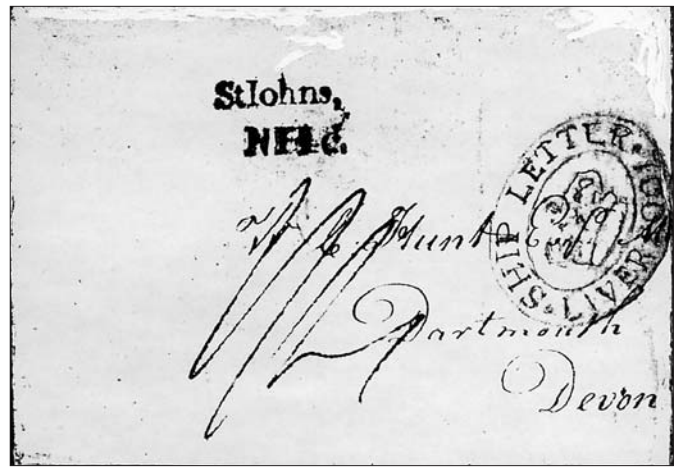 StIohns,
SHIP LETTER · LIVERPOOL ·
Hunt Esqr
Dartmouth
Devon